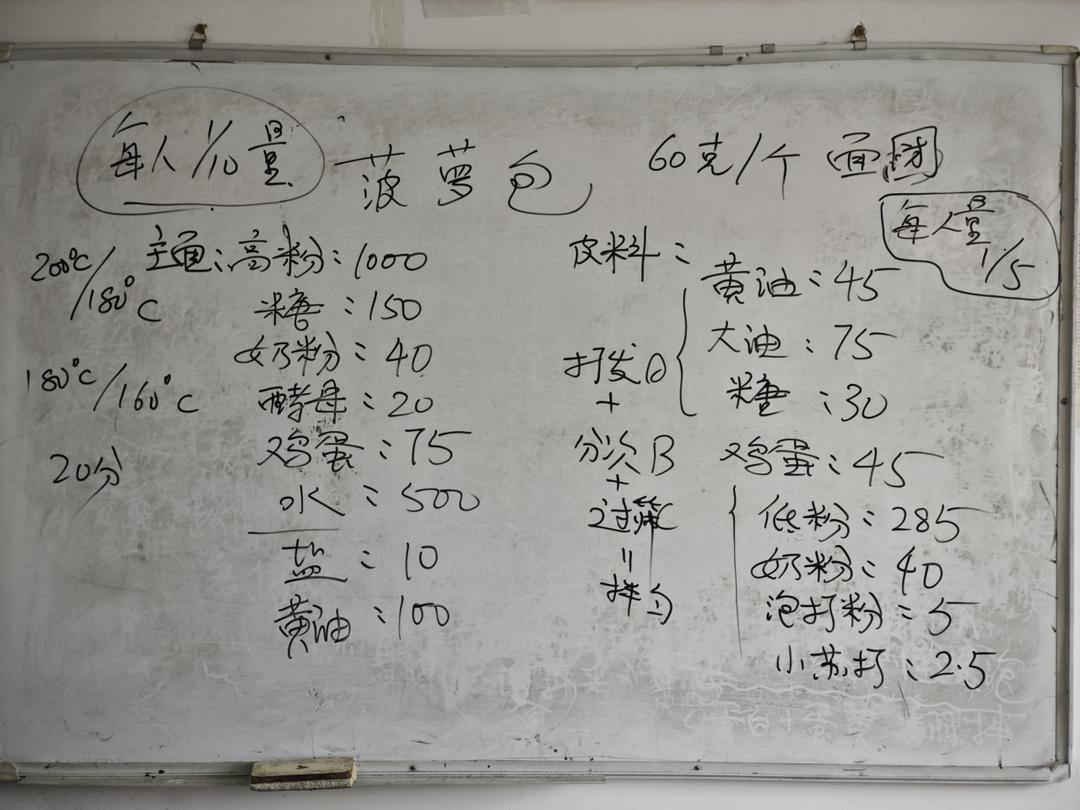 每人1/10量
菠萝包
60克/个 面团
每人量
1/5
200℃/180℃
180℃/160℃
20分
主面:高粉:1000
糖:150
奶粉:40
酵母:20
鸡蛋:75
水:500
盐:10
黄油:100
皮料:
黄油:45
大油:75
糖:30
打发
+
分次B
+
过筛C
=
拌匀
鸡蛋:45
低粉:285
奶粉:40
泡打粉:5
小苏打:2.5